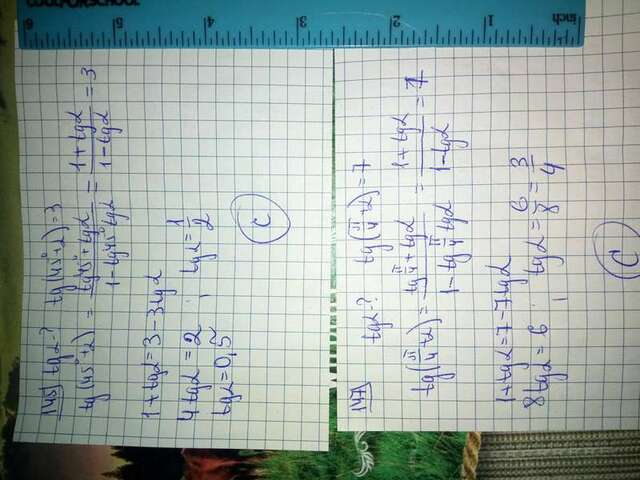 145) tgα-? tg(45°+α)=3
tg(45°+α) = \frac{tg45°+tgα}{1-tg45°tgα} = \frac{1+tgα}{1-tgα} = 3
1+tgα=3-3tgα
4tgα=2 ; tgα=\frac{1}{2}
tgα=0,5
C
147) tgα-? tg(\frac{π}{4}+α)=7
tg(\frac{π}{4}+α)=\frac{tg\frac{π}{4}+tgα}{1-tg\frac{π}{4}tgα} = \frac{1+tgα}{1-tgα} = 7
1+tgα=7-7tgα
8tgα=6 ; tgα=\frac{6}{8}=\frac{3}{4}
C
6 5 4 3 2 1 inch